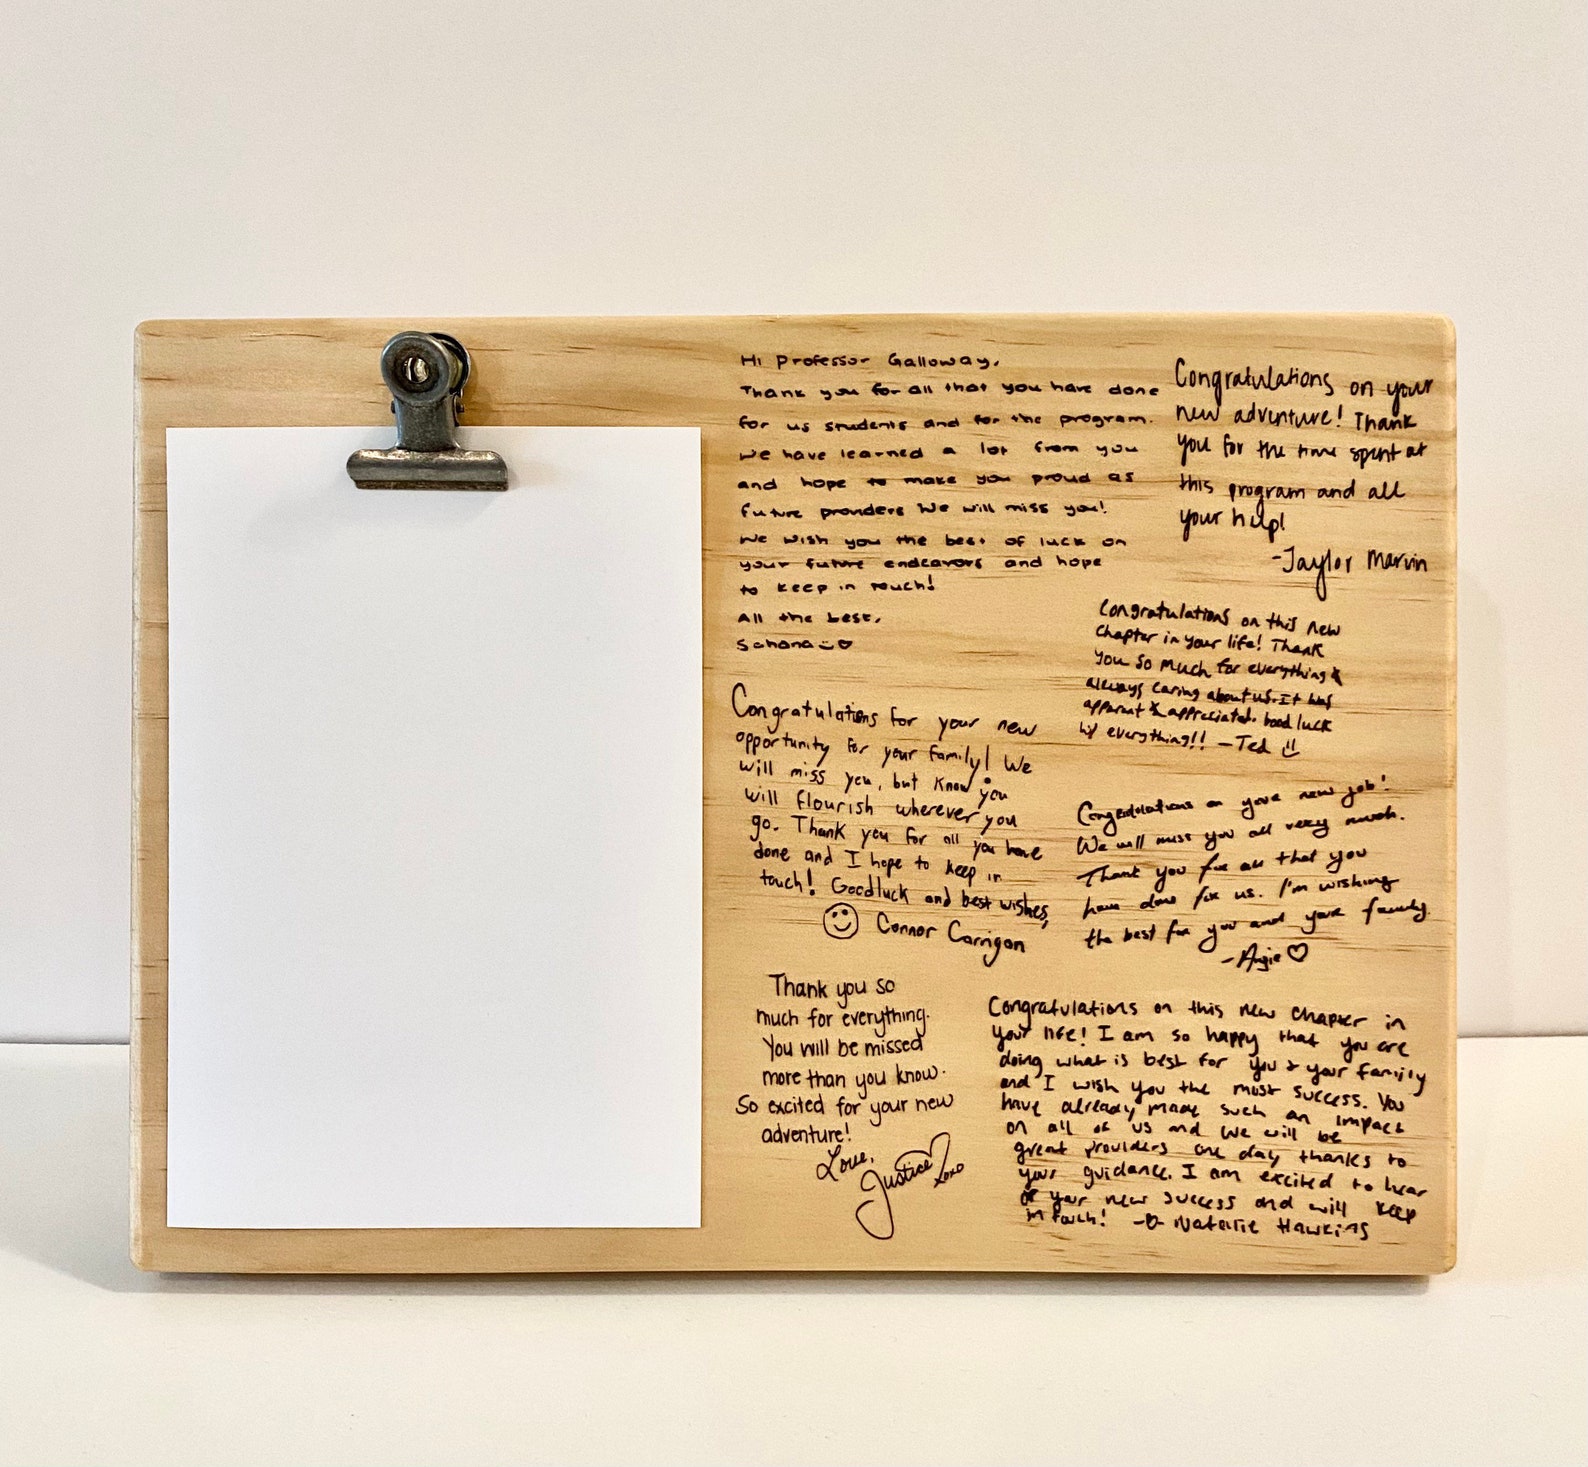 Hi Professor Galloway,
Thank you for all that you have done
for us students and for the program.
We have learned a lot from you
and hope to make you proud as
future providers We will miss you!
We wish you the best of luck on
your future endeavors and hope
to keep in touch!
All the best,
Sahana
Congratulations on your
new adventure! Thank
you for the time spent at
this program and all
your help!
-Taylor Marvin
Congratulations on this new
chapter in your life! Thank
you so much for everything &
always caring about us. It was
apparent & appreciated. Good luck
w/ everything!! -Ted
Congratulations for your new
opportunity for your family! We
will miss you, but know you
will flourish wherever you
go. Thank you for all you have
done and I hope to keep in
touch! Good luck and best wishes,
Connor Carrigan
Congratulations on your new job!
We will miss you all very much.
Thank you for all that you
have done for us. I'm wishing
the best for you and your family.
-Angie
Thank you so
much for everything.
You will be missed
more than you know.
So excited for your new
adventure!
Love,
Justice xoxo
Congratulations on this new chapter in
your life! I am so happy that you are
doing what is best for you & your family
and I wish you the most success. You
have already made such an impact
on all of us and we will be
great providers one day thanks to
your guidance. I am excited to hear
of your new success and will keep
in touch! - Natalie Hawkins